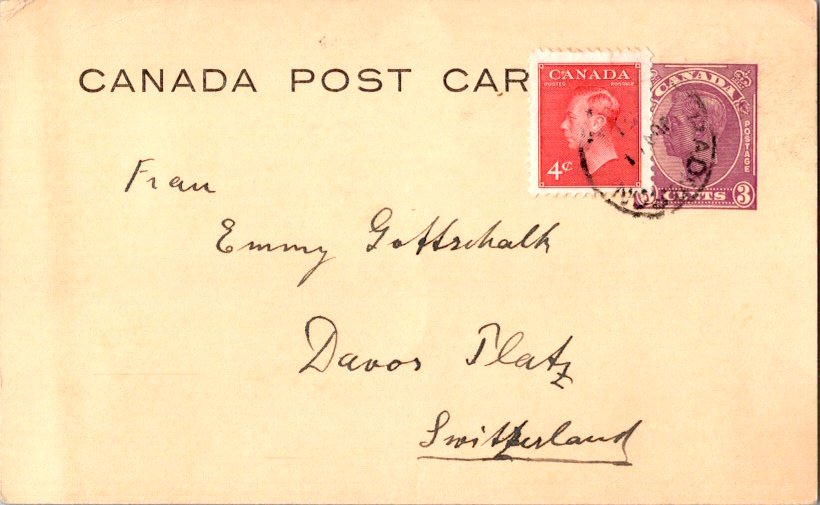 CANADA POST CAR
CANADA
POSTES POSTAGE
4¢
CANADA
POSTAGE
CENTS 3
Frau
Emmy Gottschalk
Davos Platz
Switzerland